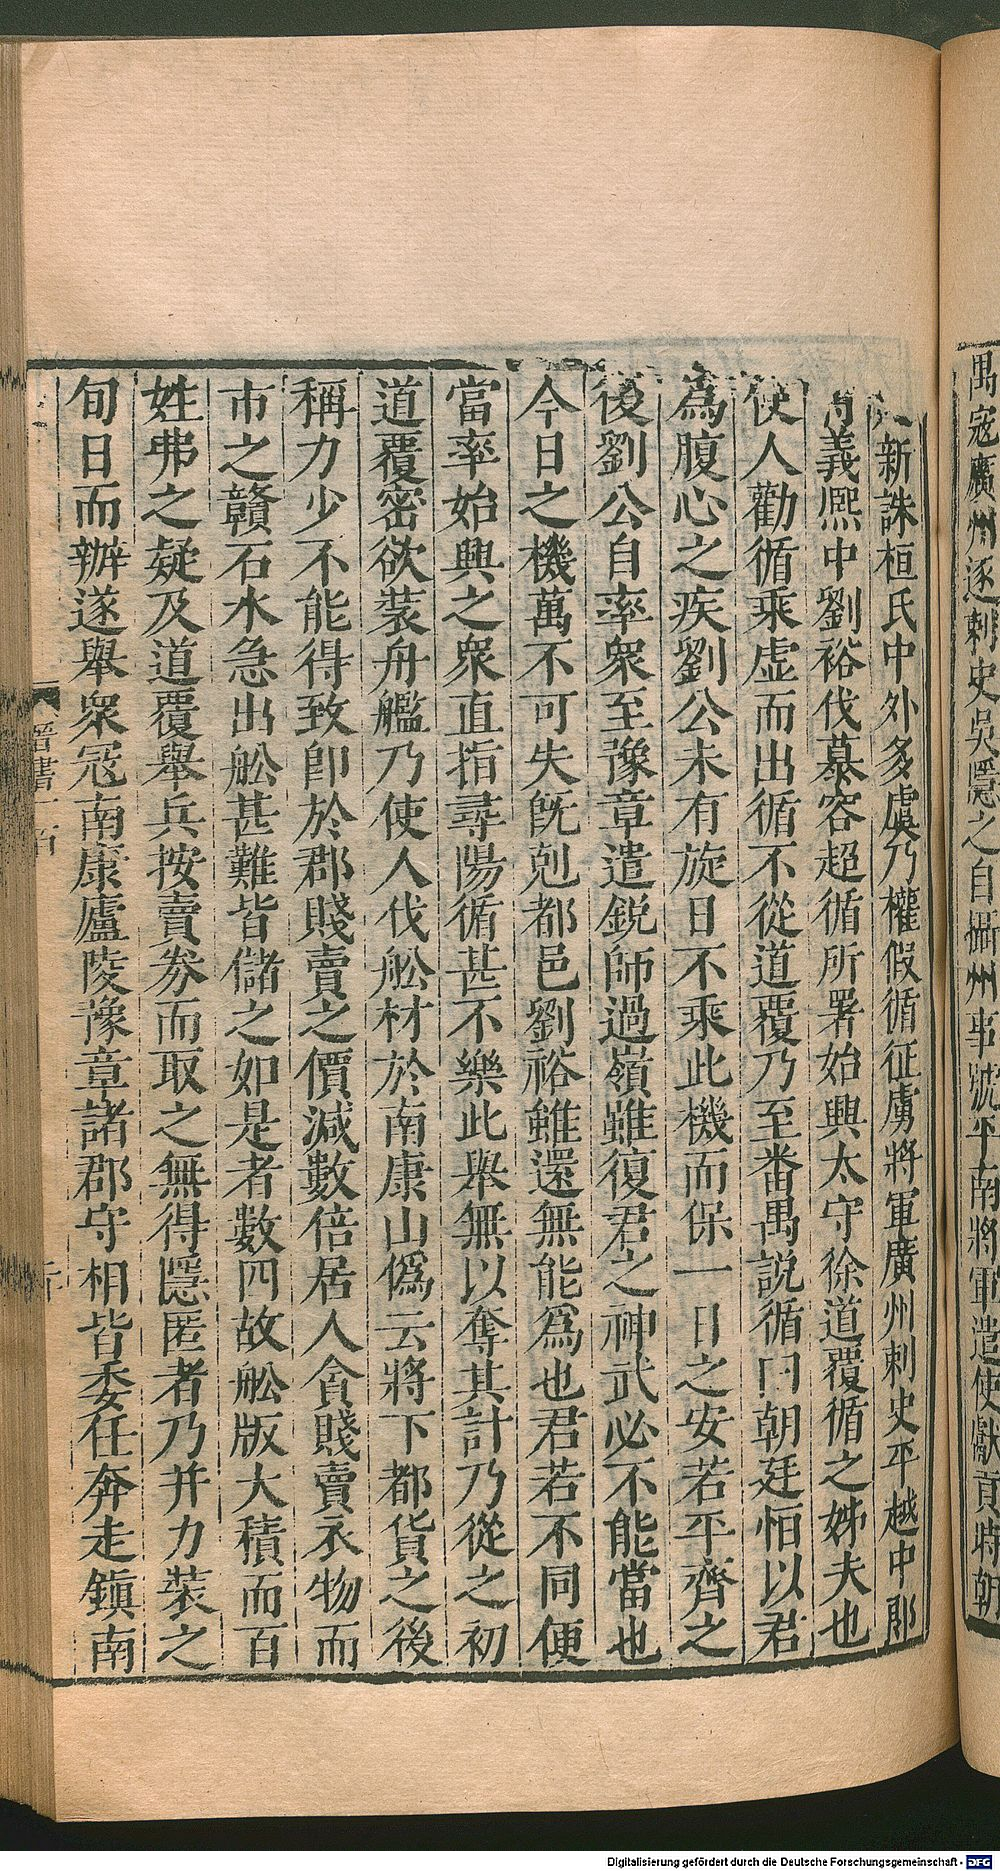 禺寇廣州逐刺史吳隱之自攝州事號平南將軍遣使獻貢時朝
新誅桓氏中外多虞乃權假循征虜將軍廣州刺史平越中郎
義熙中劉裕伐慕容超循所署始興太守徐道覆循之姊夫也
使人勸循乘虛而出循不從道覆乃至番禺說循曰朝廷恒以君
為腹心之疾劉公未有旋日不乘此機而保一日之安若平齊之
後劉公自率衆至豫章遣銳師過嶺雖復君之神武必不能當也
今日之機萬不可失旣剋都邑劉裕雖還無能爲也君若不同便
當率始興之衆直指尋陽循甚不樂此舉無以奪其計乃從之初
道覆密欲裝舟艦乃使人伐舩材於南康山僞云將下都貨之後
稱力少不能得致卽於郡賤賣之價減數倍居人貪賤賣衣物而
市之贛石水急出舩甚難皆儲之如是者數四故舩版大積而百
姓弗之疑及道覆舉兵按賣券而取之無得隱匿者乃并力裝之
旬日而辦遂舉衆寇南康廬陵豫章諸郡守相皆委任奔走鎭南
晉書一百
Digitalisierung gefördert durch die Deutsche Forschungsgemeinschaft - DFG